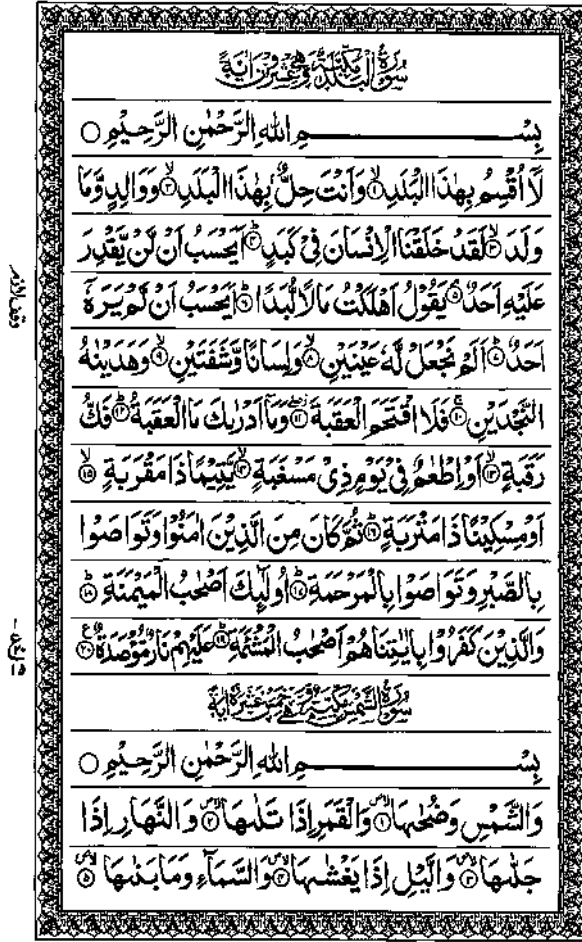 سُوْرَةُ الْبَلَدِ مَكِّيَّةٌ وَّهِيَ عِشْرُوْنَ اٰيَةً
بِسْمِ اللهِ الرَّحْمٰنِ الرَّحِيْمِ ○
لَآ اُقْسِمُ بِهٰذَا الْبَلَدِ ۙ﴿۱﴾ وَاَنْتَ حِلٌّۢ بِهٰذَا الْبَلَدِ ۙ﴿۲﴾ وَوَالِدٍ وَّمَا
وَلَدَ ۙ﴿۳﴾ لَقَدْ خَلَقْنَا الْاِنْسَانَ فِيْ كَبَدٍ ؕ﴿۴﴾ اَيَحْسَبُ اَنْ لَّنْ يَّقْدِرَ
عَلَيْهِ اَحَدٌ ۘ﴿۵﴾ يَقُوْلُ اَهْلَكْتُ مَالًا لُّبَدًا ؕ﴿۶﴾ اَيَحْسَبُ اَنْ لَّمْ يَرَهٗٓ
اَحَدٌ ؕ﴿۷﴾ اَلَمْ نَجْعَلْ لَّهٗ عَيْنَيْنِ ۙ﴿۸﴾ وَلِسَانًا وَّشَفَتَيْنِ ۙ﴿۹﴾ وَهَدَيْنٰهُ
النَّجْدَيْنِ ۚ﴿۱۰﴾ فَلَا اقْتَحَمَ الْعَقَبَةَ ۖ﴿۱۱﴾ وَمَآ اَدْرٰىكَ مَا الْعَقَبَةُ ؕ﴿۱۲﴾ فَكُّ
رَقَبَةٍ ۙ﴿۱۳﴾ اَوْ اِطْعٰمٌ فِيْ يَوْمٍ ذِيْ مَسْغَبَةٍ ۙ﴿۱۴﴾ يَّتِيْمًا ذَا مَقْرَبَةٍ ۙ﴿۱۵﴾
اَوْ مِسْكِيْنًا ذَا مَتْرَبَةٍ ؕ﴿۱۶﴾ ثُمَّ كَانَ مِنَ الَّذِيْنَ اٰمَنُوْا وَتَوَاصَوْا
بِالصَّبْرِ وَتَوَاصَوْا بِالْمَرْحَمَةِ ؕ﴿۱۷﴾ اُولٰٓئِكَ اَصْحٰبُ الْمَيْمَنَةِ ؕ﴿۱۸﴾
وَالَّذِيْنَ كَفَرُوْا بِاٰيٰتِنَا هُمْ اَصْحٰبُ الْمَشْئَمَةِ ؕ﴿۱۹﴾ عَلَيْهِمْ نَارٌ مُّؤْصَدَةٌ ﴿۲۰﴾
سُوْرَةُ الشَّمْسِ مَكِّيَّةٌ وَّهِيَ خَمْسَ عَشْرَةَ اٰيَةً
بِسْمِ اللهِ الرَّحْمٰنِ الرَّحِيْمِ ○
وَالشَّمْسِ وَضُحٰىهَا ﴿۱﴾ وَالْقَمَرِ اِذَا تَلٰىهَا ﴿۲﴾ وَالنَّهَارِ اِذَا
جَلّٰىهَا ﴿۳﴾ وَالَّيْلِ اِذَا يَغْشٰىهَا ﴿۴﴾ وَالسَّمَآءِ وَمَا بَنٰىهَا ﴿۵﴾